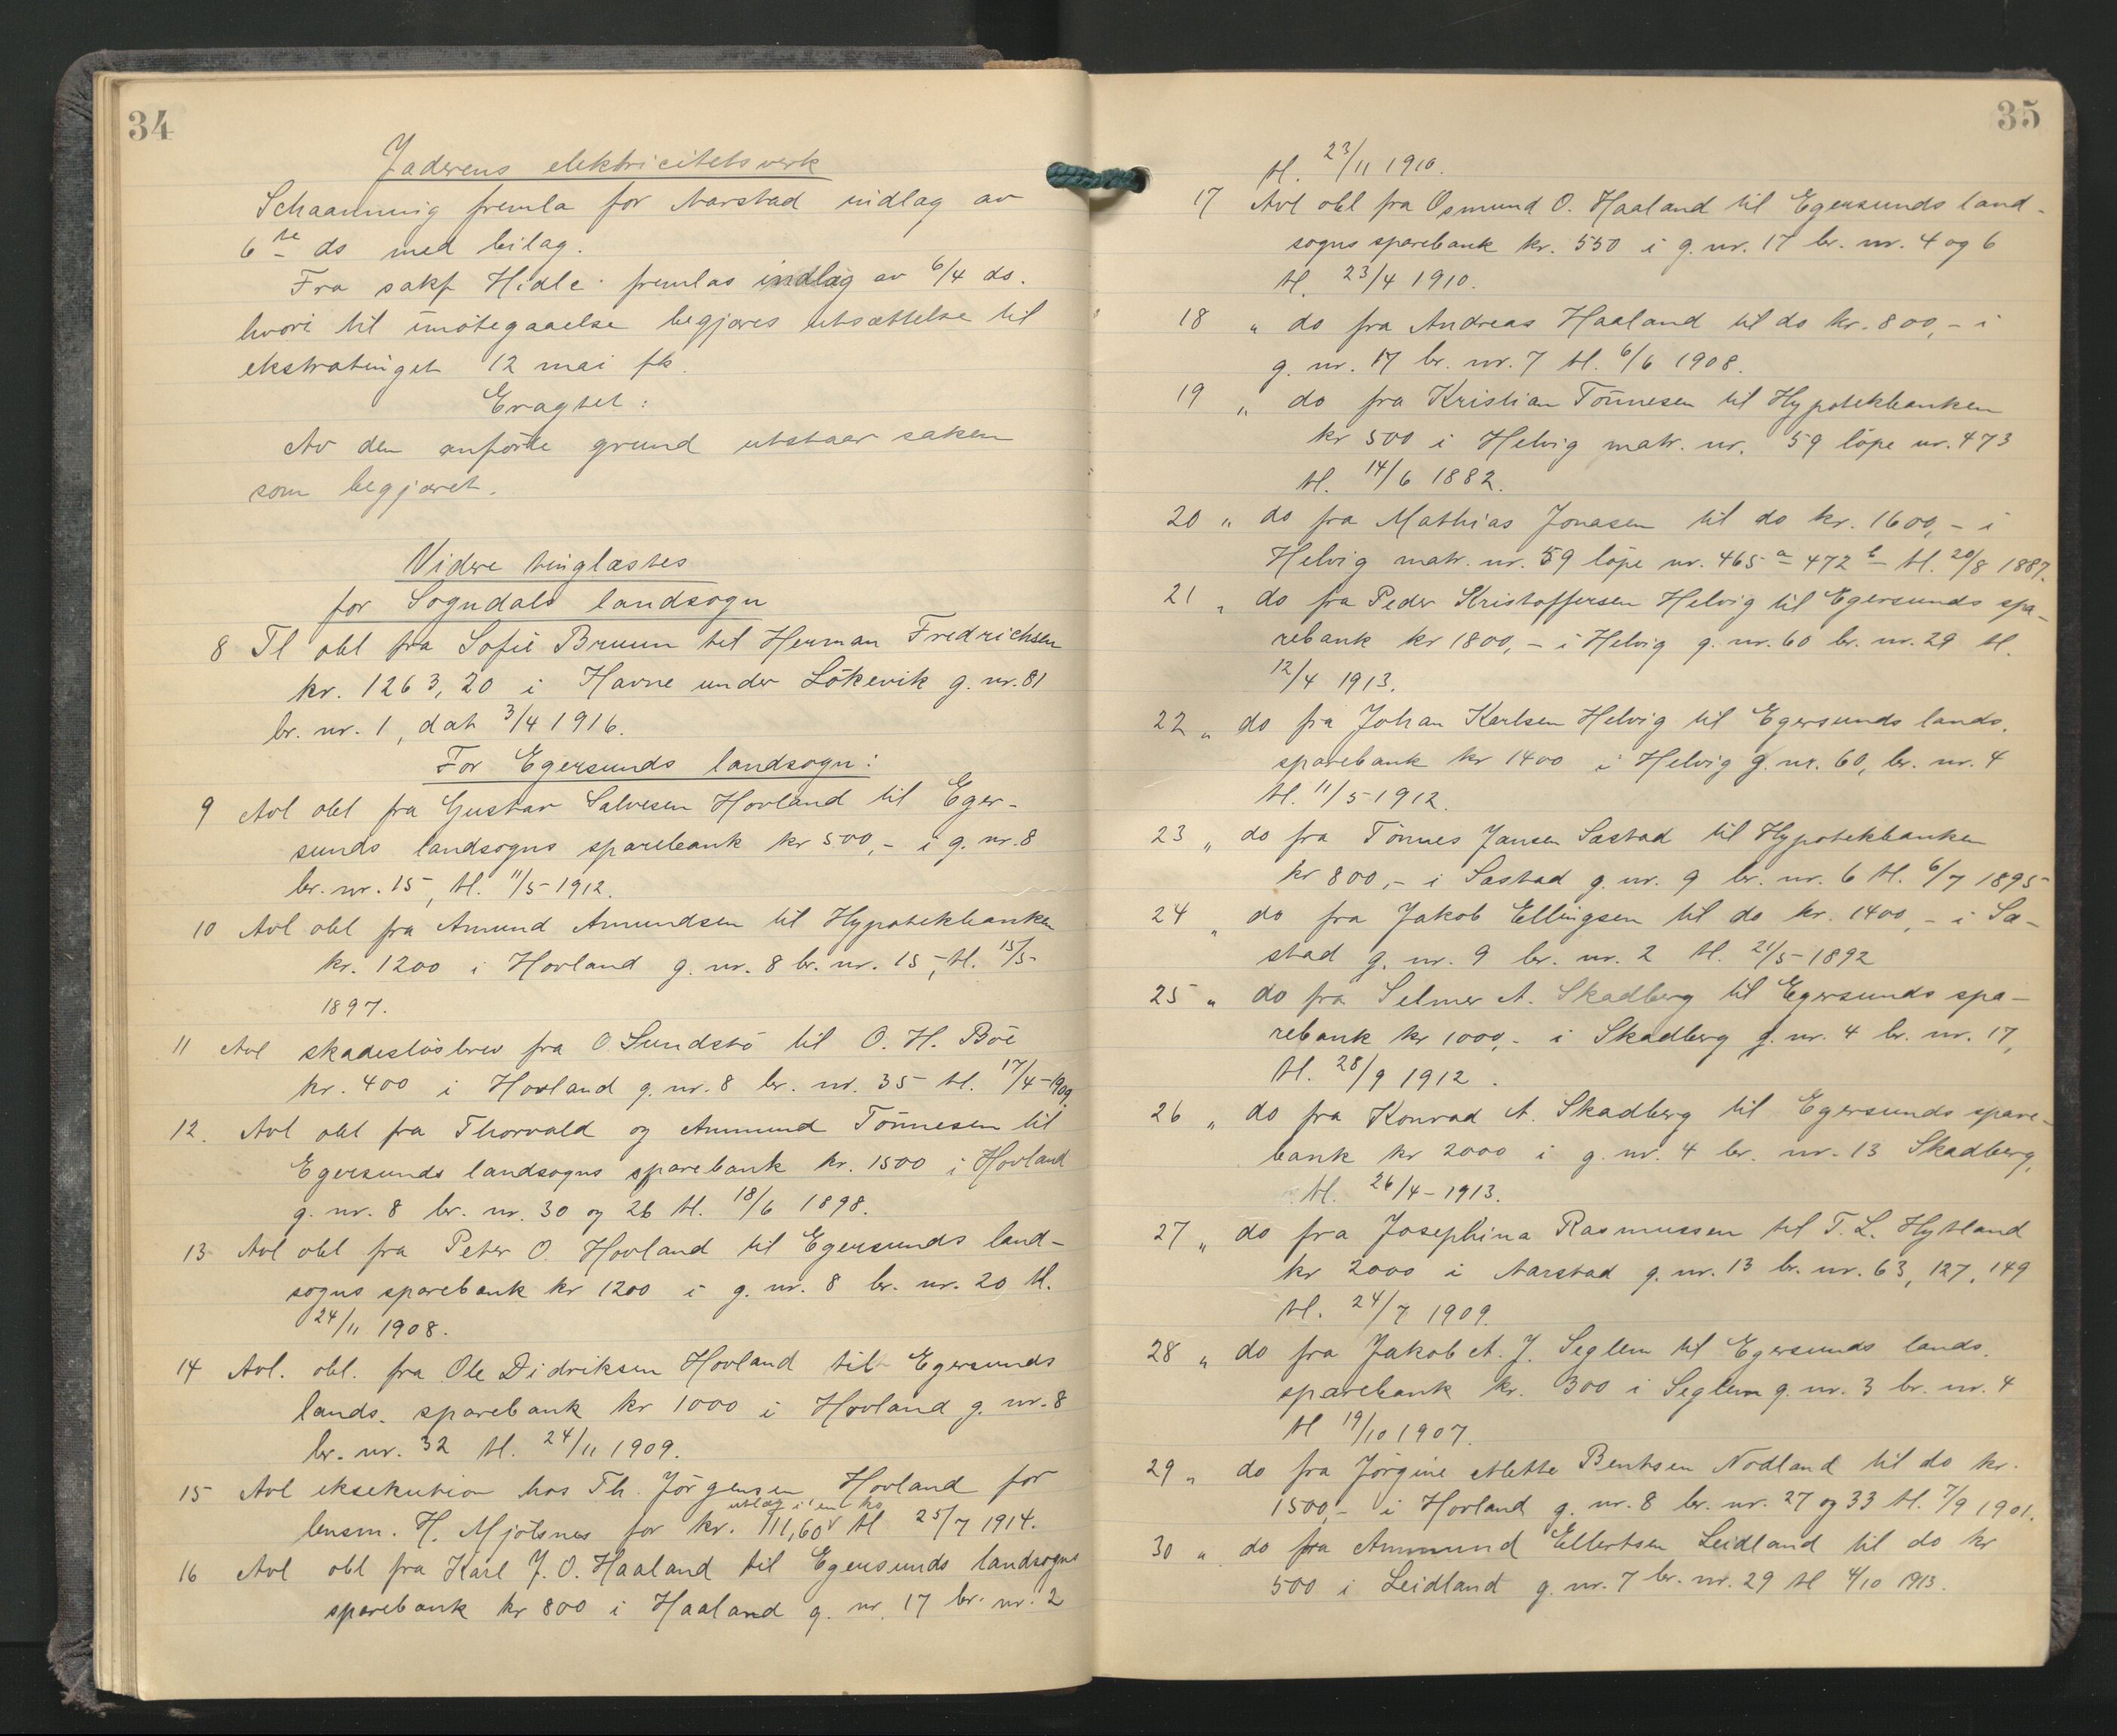 34
Jaderens elektricitetsverk
Schaanning fremla for Aarstad indlag av
6te ds med bilag.
Fra sakf Hidle fremlas indlag av 6/4 ds.
hvori til imötegaaelse begjæres utsættelse til
ekstratinget 12 mai fk.
Eragtet:
Av den anförte grund utstaar saken
som begjæret.
Videre tinglæstes
for Sogndals landsogn
8 Tl obl fra Sofie Bruun til Herman Fredrichsen
kr. 1263,20 i Havne under Lökevik g. nr. 81
br. nr. 1, dat 3/4 1916.
For Egersunds landsogn:
9 Avl obl fra Gustav Salvesen Hovland til Eger-
sunds landsogns sparebank kr 500,- i g. nr. 8
br. nr. 15, tl. 11/5 1912.
10 Avl obl fra Amund Amundsen til Hypotekbanken
kr. 1200 i Hovland g. nr. 8 br. nr. 15, tl. 15/5
1897.
11 Avl skadeslösbrev fra O. Sundstö til O. H. Böe
kr. 400 i Hovland g. nr. 8 br. nr. 35 tl. 17/4-1909
12. Avl obl fra Thorvald og Ammund Tönnesen til
Egersunds landsogns sparebank kr. 1500 i Hovland
g. nr. 8 br. nr. 30 og 26 tl. 18/6 1898.
13 Avl obl fra Peter O. Hovland til Egersunds land-
sogns sparebank kr 1200 i g. nr. 8 br. nr. 20 tl.
24/11 1908.
14 Avl. obl. fra Ole Didriksen Hovland til Egersunds
lands. sparebank kr 1000 i Hovland g. nr. 8
br. nr. 32 tl. 24/11 1909.
15 Avl eksekution hos Th. Jörgensen Hovland for
utlæg i en ko
lensm. H. Mjölsnes for kr. 111,60 v tl 25/7 1914.
16 Avl obl fra Karl J. O. Haaland til Egersunds landsogns
sparebank kr 800 i Haaland g. nr. 17 br. nr. 2
35
tl. 23/11 1910.
17 Avl obl fra Osmund O. Haaland til Egersunds land-
sogns sparebank kr. 550 i g. nr. 17 br. nr. 4 og 6
tl. 23/4 1910.
18 " do fra Andreas Haaland til do kr. 800,- i
g. nr. 17 br. nr. 7 tl. 6/6 1908.
19 " do fra Kristian Tönnesen til Hypotekbanken
kr 500 i Helvig matr. nr. 59 löpe nr. 473
tl. 14/6 1882.
20 " do fra Mathias Jonasen til do kr. 1600,- i
Helvig matr. nr. 59 löpe nr. 465a 472b tl. 20/8 1887.
21 " do fra Peder Kristoffersen Helvig til Egersunds spa-
rebank kr 1800,- i Helvig g. nr. 60 br. nr. 29 tl.
12/4 1913.
22 " do fra Johan Karlsen Helvig til Egersunds lands.
sparebank kr 1400 i Helvig g. nr. 60, br. nr. 4
tl. 11/5 1912.
23 " do fra Tönnes Jansen Sæstad til Hypotekbanken
kr 800,- i Sæstad g. nr. 9 br. nr. 6 tl. 6/7 1895
24 " do fra Jakob Ellingsen til do kr. 1400,- i Sæ-
stad g. nr. 9 br. nr. 2 tl. 21/5 1892
25 " do fra Selmer A. Skadberg til Egersunds spa-
rebank kr 1000,- i Skadberg g. nr. 4 br. nr. 17,
tl. 28/9 1912.
26 " do fra Konrad A. Skadberg til Egersunds spare-
bank kr 2000 i g. nr. 4 br. nr. 13 Skadberg,
tl. 26/4-1913.
27 " do fra Josephina Rasmussen til T. L. Hytland
kr 2000 i Aarstad g. nr. 13 br. nr. 63, 127, 149
tl. 24/7 1909.
28 " do fra Jakob A. J. Seglem til Egersunds lands.
sparebank kr. 300 i Seglem g. nr. 3 br. nr. 4
tl 19/10 1907.
29 " do fra Jörgine Mette Bentsen Nodland til do kr.
1500,- i Hovland g. nr. 8 br. nr. 27 og 33 tl. 7/9 1901.
30 " do fra Ammund Ellertsen Leidland til do kr
500 i Leidland g. nr. 7 br. nr. 29 tl 4/10 1913.